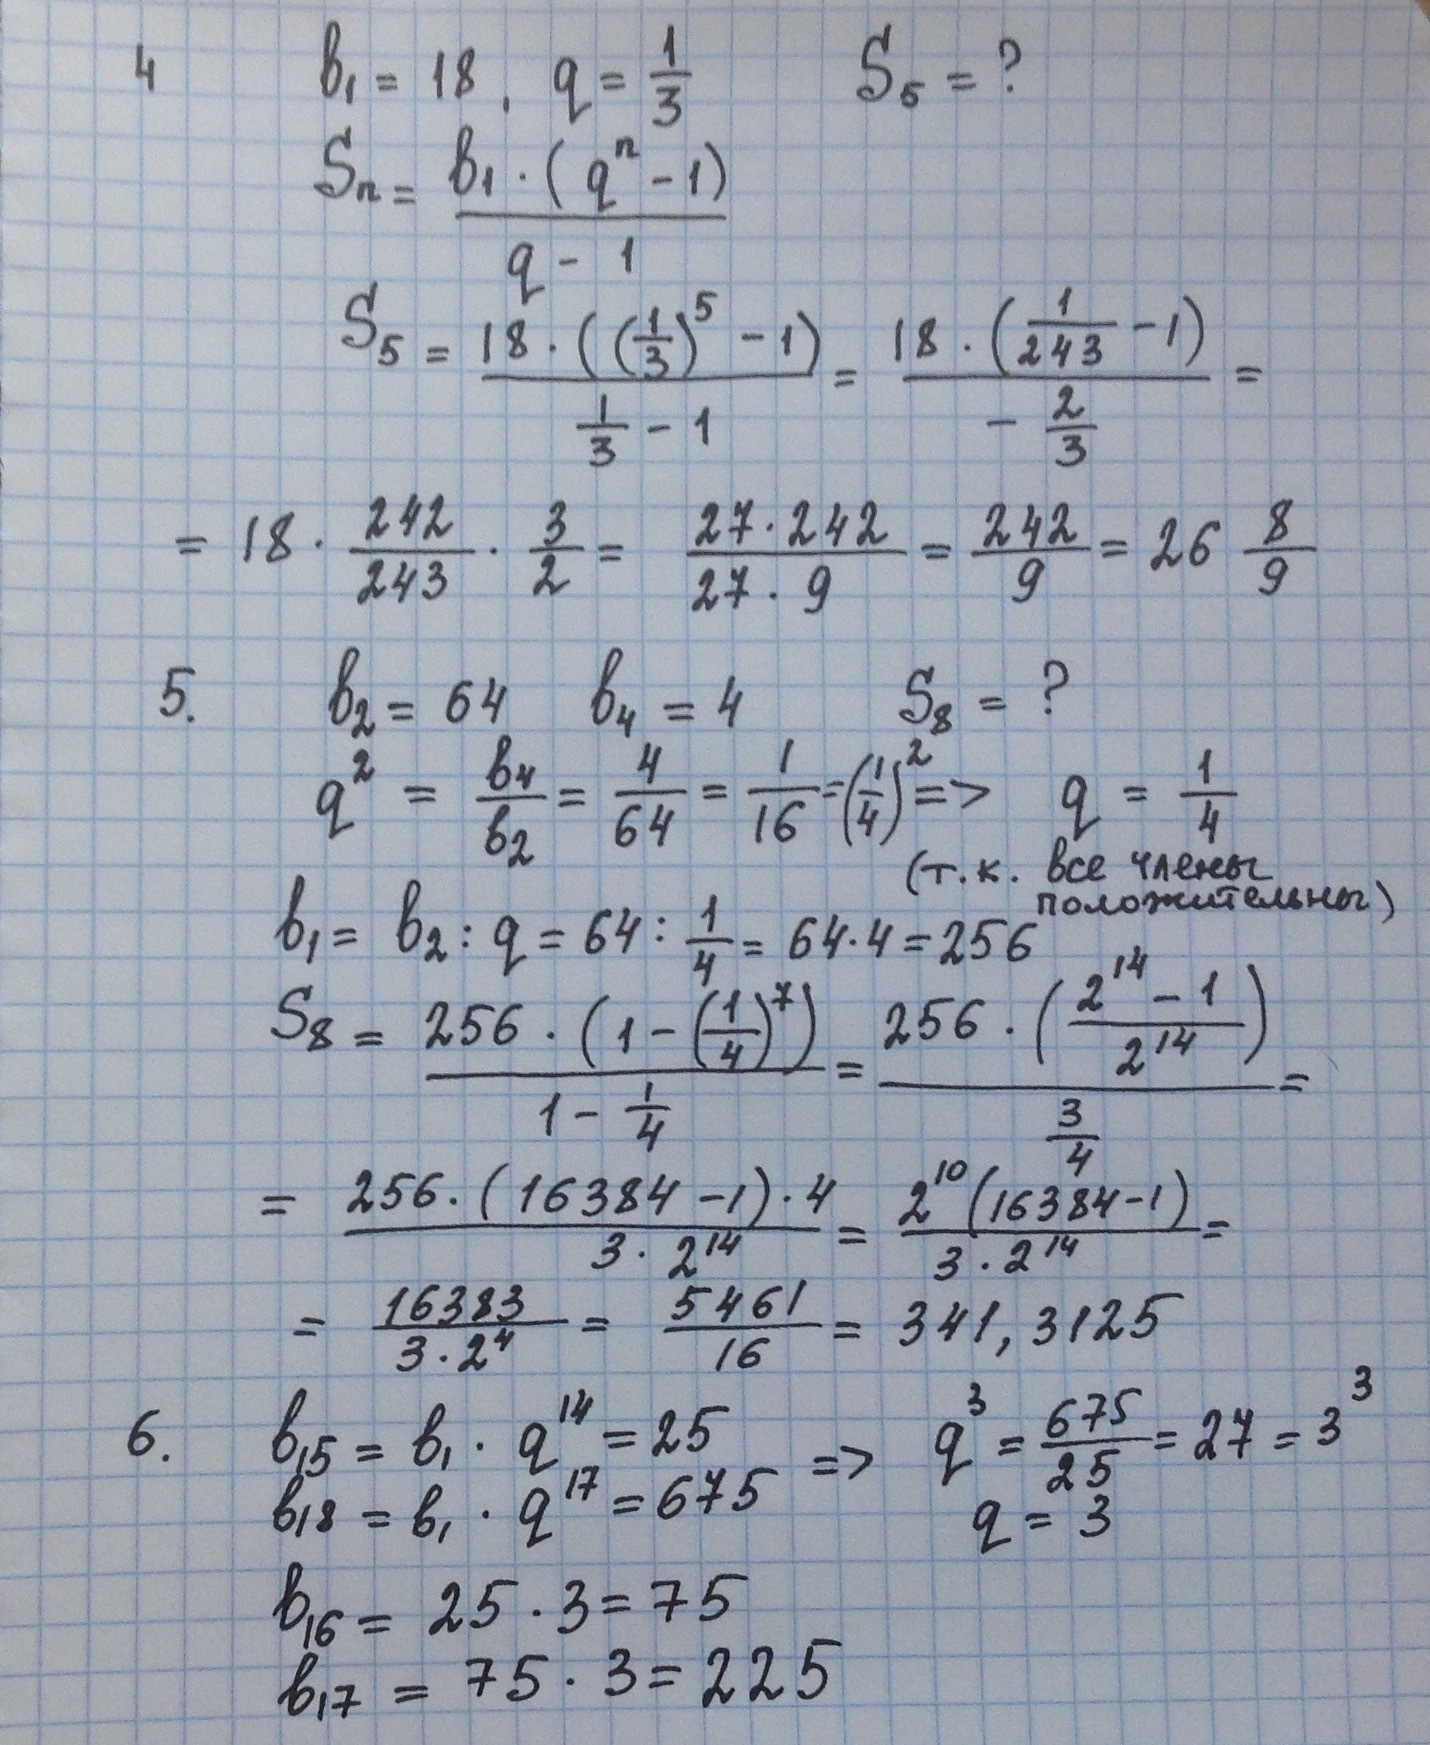 4 b₁ = 18, q = 1/3 S₅ = ?
Sₙ = b₁·(qⁿ - 1) / (q - 1)
S₅ = 18·((1/3)⁵ - 1) / (1/3 - 1) = 18·(1/243 - 1) / (-2/3) =
= 18 · 242/243 · 3/2 = 27·242 / 27·9 = 242/9 = 26 8/9
5. b₂ = 64 b₄ = 4 S₈ = ?
q² = b₄/b₂ = 4/64 = 1/16 = (1/4)² => q = 1/4
(т.к. все члены
положительны)
b₁ = b₂ : q = 64 : 1/4 = 64·4 = 256
S₈ = 256·(1 - (1/4)⁷) / (1 - 1/4) = 256·((2¹⁴ - 1)/2¹⁴) / (3/4) =
= 256·(16384 - 1)·4 / 3·2¹⁴ = 2¹⁰(16384 - 1) / 3·2¹⁴ =
= 16383 / 3·2⁴ = 5461/16 = 341,3125
6. b₁₅ = b₁·q¹⁴ = 25 => q³ = 675/25 = 27 = 3³
b₁₈ = b₁·q¹⁷ = 675 q = 3
b₁₆ = 25·3 = 75
b₁₇ = 75·3 = 225